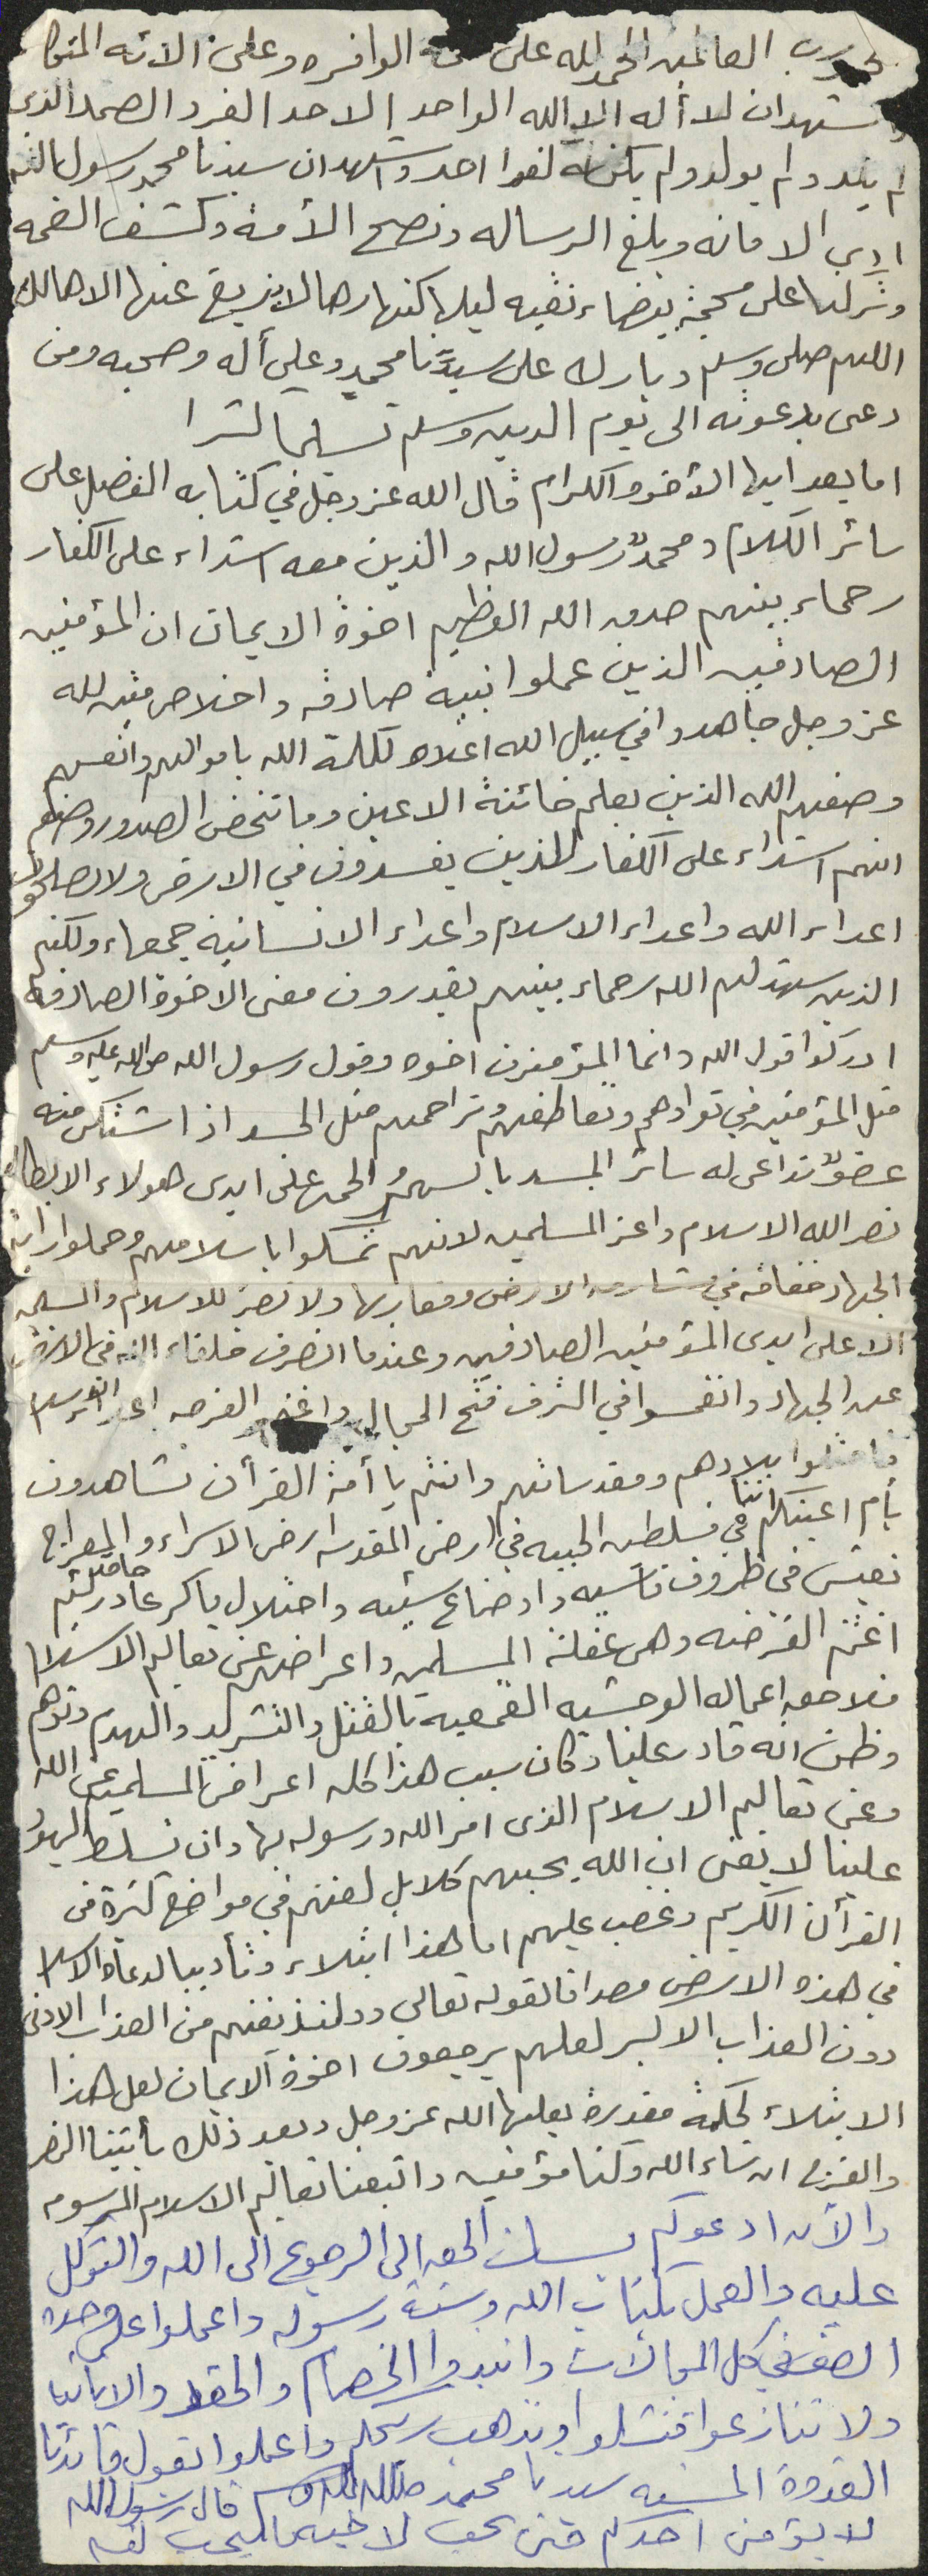 رب العالمين الحمد لله على الوافره وعلى الائه المتوا
ونشهد ان لا أله الا الله الواحد الاحد الفرد الصمد الذي
لم يلد ولم يولد ولم يكن له كفوا احد ونشهد ان سيدنا محمد رسول الله
ادى الامانه وبلغ الرساله ونصح الأمة وكشف الغمه
وتركنا على محجة بيضاء نقيه ليلها كنهارها لا يزيغ عنها الا هالك
اللهم صلي وسلم وبارك على سيدنا محمدٍ وعلى أله وصحبه ومن
دعى بدعوته الى يوم الدين وسلم تسليما كثيرا
اما بعد ايها الأخوه الكرام قال الله عز وجل في كتابه المفضل على
سائر الكلام ومحمدٌ رسول الله والذين معه اشداء على الكفار
رحماء بينهم صدق الله العظيم اخوة الايمان ان المؤمنين
الصادقين الذين عملوا بنية صادقه واخلاص متين لله
عز وجل جاهدوا في سبيل الله اعلاء لكلمة الله باموالهم وانفسهم
وصفهم الله الذين يعلم خائنة الاعين وما تخفى الصدور وصفهم
انهم اشداء على الكفار الذين يفسدون في الارض ولا يصلحون
اعداء الله واعداء الاسلام واعداء الانسانية جمعاء ولكنهم
الذين شهد لهم الله رحماء بينهم يقدرون معنى الاخوة الصادقة
ادركوا قول الله وانما المؤمنون اخوه وقول رسول الله صلى الله عليه وسلم
مثل المؤمنين في توادهم وتعاطفهم وتراحمهم مثل الجسد اذا اشتكى منه
عضوٌ تداعى له سائر الجسد بالسهر والحمى على ايدى هولاء الابطال
نصر الله الاسلام واعز المسلمين لانهم تمسكوا باسلامهم وحملوا راية
الجهاد خفاقه في مشارق الارض ومغاربها ولا نصر للاسلام والمسلمين
الا على ايدى المؤمنين الصادقين وعندما انصرف خلفاء الله في الارض
عن الجهاد وانغمسوا في الترف فتح المجال واغتنم الفرصه اعداء الاسلام
بلادهم ومقدساتهم وانتم يا أمة القرأن تشاهدون
بأم اعينكم اننا في فلسطين الحبيبه في ارض المقدسه ارض الاسراء والمعراج
نعيش في ظروف قاسيه واوضاع سيئه واحتلال ماكر غادر حاقد لئيم
اغتنم الفرصه وهي غفلة المسلمين واعراضهم عن تعاليم الاسلام
فلاحق اعماله الوحشيه القمعية بالقتل والتشريد والهدم وتوهم
وظن انه قادر علينا وكان سبب هذا كله اعراض المسلمين عن الله
وعن تعاليم الاسلام الذى امر الله ورسوله بها وان تسلط اليهود
علينا لا يعنى ان الله يحبهم كلا بل لعنهم في مواضع كثيرة في
القرأن الكريم وغضب عليهم اما هذا ابتلاء وتأديبا لدعاة الاسلام
في هذه الارض مصداقا لقوله تعالى وولنذيقنهم من العذاب الادنى
دون العذاب الاكبر لعلهم يرجعون اخوة الايمان لعل هذا
الابتلاء لحكمة مقدرة يعلمها الله عز وجل وبعد ذلك يأتينا النصر
والفرج ان شاء الله وكنا مؤمنين واتبعنا تعاليم الاسلام المرسومه
والأن ادعوكم بلسان الحق الى الرجوع الى الله والتوكل
عليه والعمل بكتاب الله وسنة رسوله واعملوا على وحدة
الصف في كل المجالات وانبذوا الخصام والحقد والانانيه
ولا تنازعوا فتفشلوا وتذهب ريحكم واعملوا بقول قائدنا
القدوة الحسنه سيدنا محمد صلى الله عليه وسلم قال رسول الله
لا يؤمن احدكم حتى يحب لاخيه ما يحب لنفسه